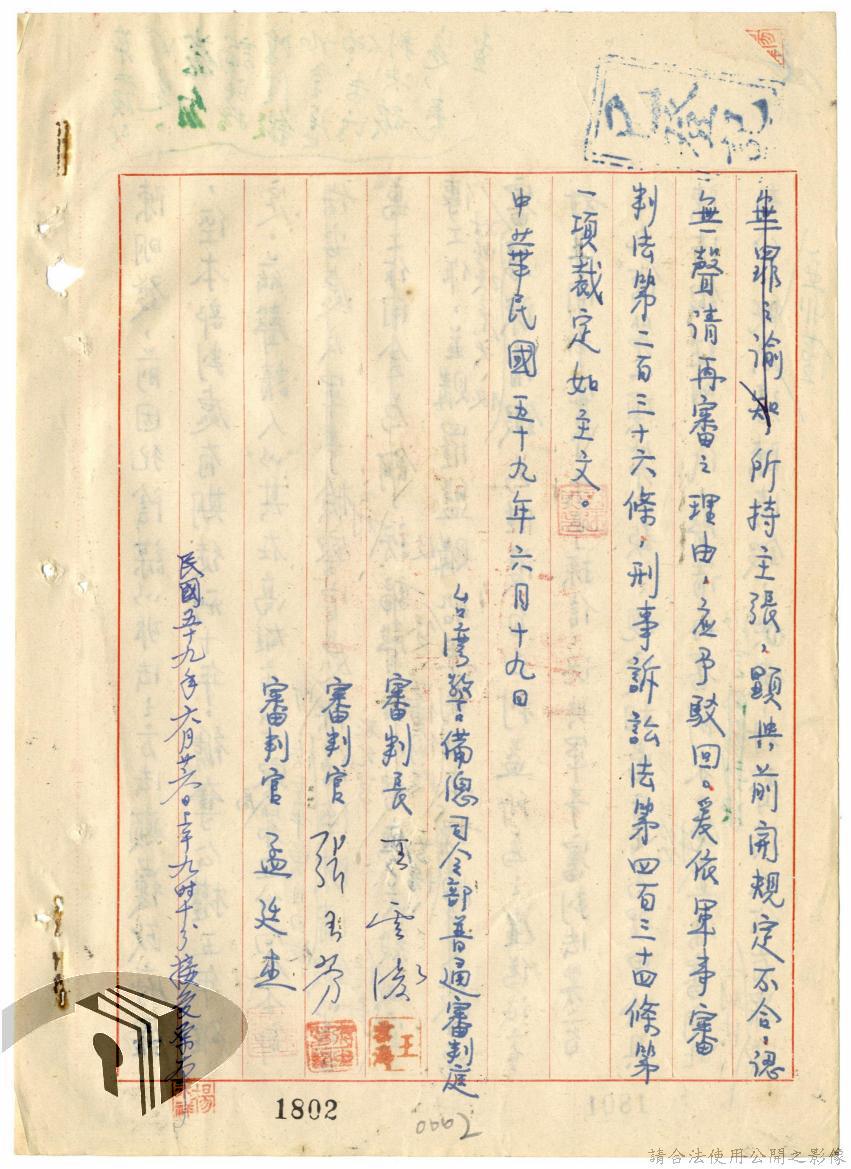 已登記
無罪之諭知所持主張，顯與前開規定不合，認
無聲請再審之理由，應予駁回。爰依軍事審
判法第二百三十六條，刑事訴訟法第四百三十四條第
一項裁定如主文。
中華民國五十九年六月十九日
台灣警備總司令部普通審判庭
審判長 王雲濤
審判官 張玉芳
審判官 孟廷杰
民國五十九年六月廿六日上午九時十分接
1802
請合法使用公開之影像